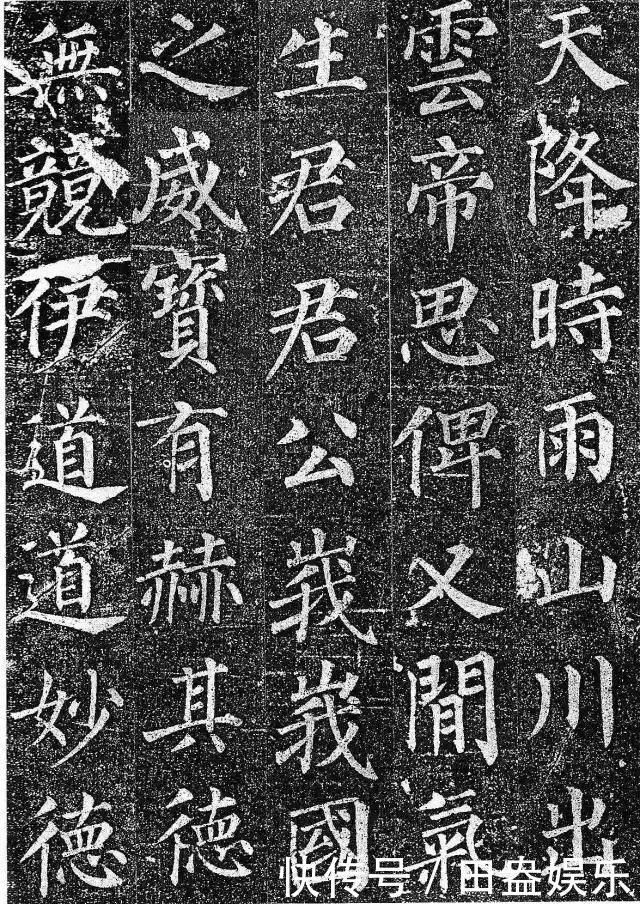 天降時雨山川出
雲帝思俾乂間氣
生君君公峩峩國
之威寶有赫其德
無競伊道道妙德
快传号/田盎娱乐